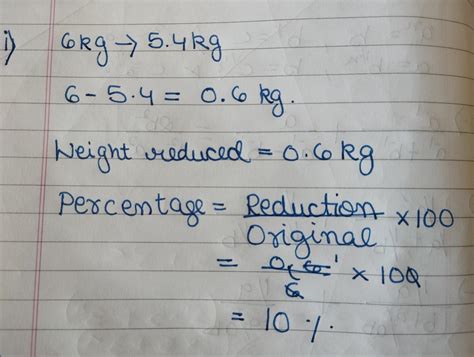 i) 6kg → 5.4kg
6 - 5.4 = 0.6 kg.
Weight reduced = 0.6 kg
Percentage = Reduction/Original × 100
= 0.6/6 × 100
= 10 %.